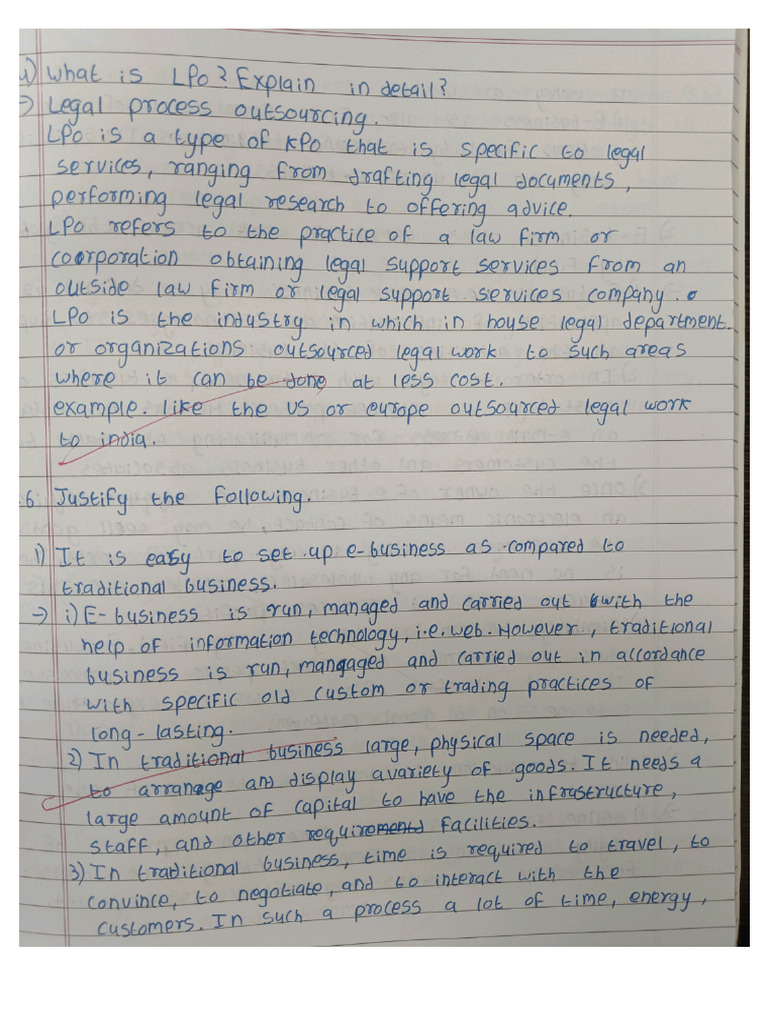 4) What is LPO? Explain in detail?
→ Legal process outsourcing.
LPO is a type of KPO that is specific to legal
services, ranging from drafting legal documents,
performing legal research to offering advice.
LPO refers to the practice of a law firm or
coorporation obtaining legal support services from an
outside law firm or legal support services company.
LPO is the industry in which in house legal department
or organizations outsourced legal work to such areas
where it can be done at less cost.
example. like the US or europe outsourced legal work
to india.
.6 Justify the following.
1) It is easy to set up e-business as compared to
traditional business.
→ i) E-business is run, managed and carried out with the
help of information technology, i.e. web. However, traditional
business is run, managed and carried out in accordance
with specific old custom or trading practices of
long-lasting.
2) In traditional business large, physical space is needed,
to arranage and display a variety of goods. It needs a
large amount of capital to have the infrastructure,
staff, and other requirements facilities.
3) In traditional business, time is required to travel, to
convince, to negotiate, and to interact with the
customers. In such a process a lot of time, energy,